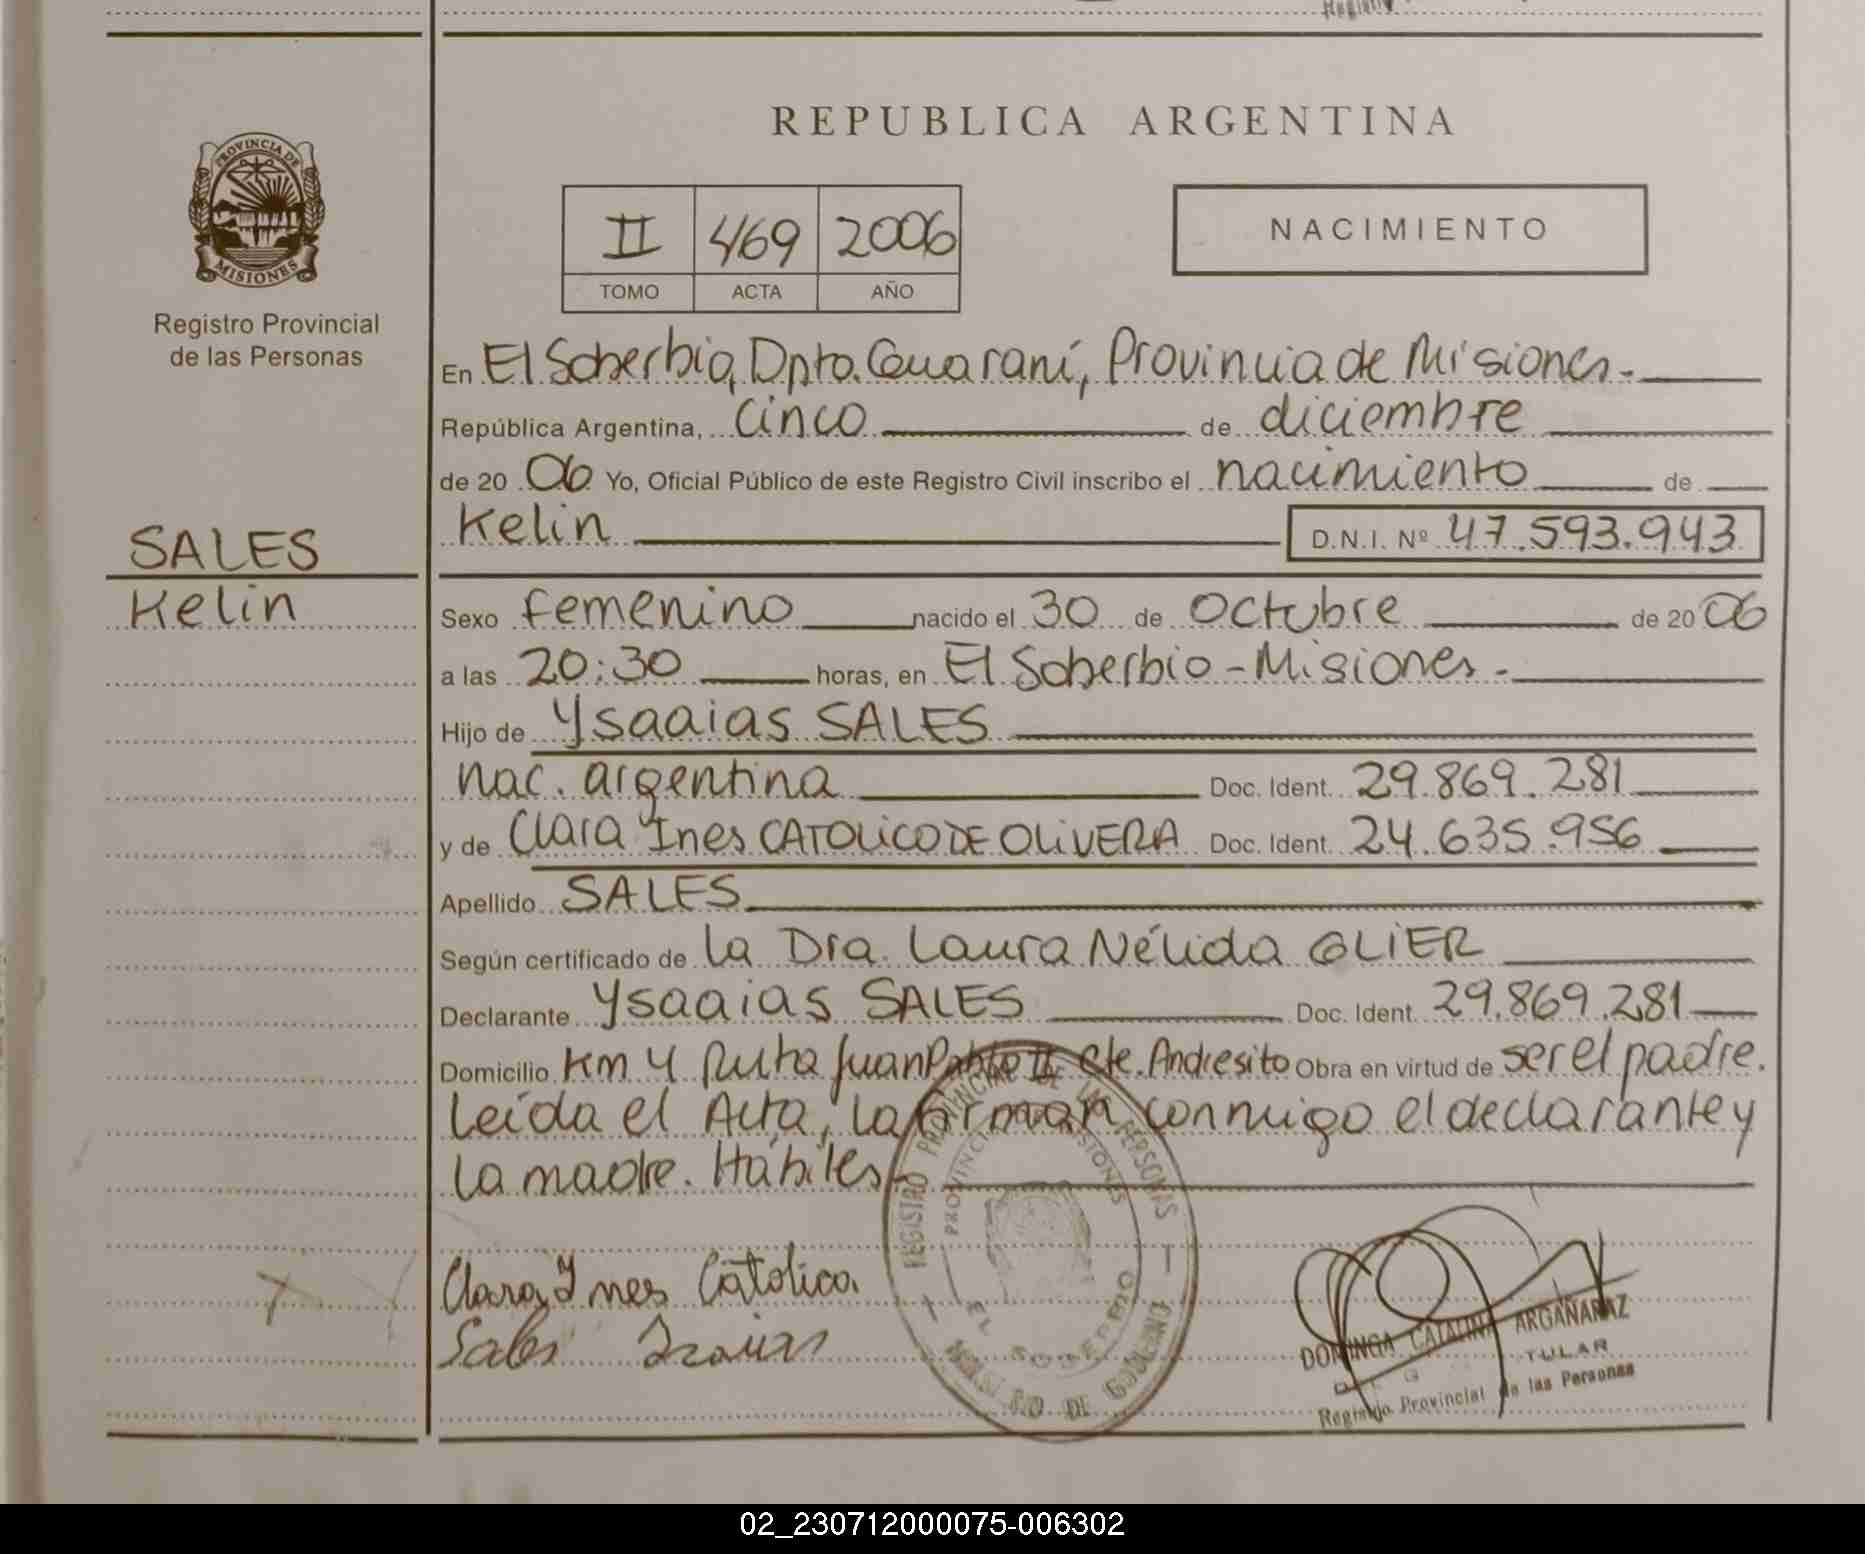 REPUBLICA ARGENTINA
PROVINCIA DE
MISIONES
Registro Provincial
de las Personas
II 469 2006
TOMO ACTA AÑO
NACIMIENTO
En El Soberbio, Dpto. Guaraní, Provincia de Misiones.-
República Argentina, cinco de diciembre
de 20 06 Yo, Oficial Público de este Registro Civil inscribo el nacimiento de
Kelin D.N.I. Nº 47.593.943
SALES
Kelin
Sexo femenino nacido el 30 de Octubre de 20 06
a las 20:30 horas, en El Soberbio - Misiones.-
Hijo de Ysaaias SALES
nac. argentina Doc. Ident. 29.869.281
y de Clara Ines CATOLICO DE OLIVERA Doc. Ident. 24.635.956
Apellido SALES
Según certificado de la Dra. Laura Nélida GLIER
Declarante Ysaaias SALES Doc. Ident. 29.869.281
Domicilio Km 4 Ruta Juan Pablo II Cte. Andresito Obra en virtud de ser el padre.
Leída el Acta, la firman conmigo el declarante y
la madre. Hábiles-
REGISTRO PROVINCIAL DE LAS PERSONAS
PROVINCIA DE MISIONES
EL SOBERBIO
MINISTERIO DE GOBIERNO
Clara Ines Catolico
Sales
DOMINGA CATALINA ARGAÑARAZ
Registro Provincial de las Personas
02_230712000075-006302